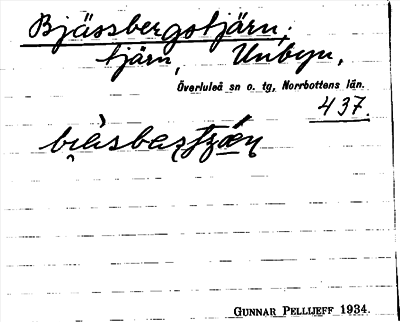 Bjässbergstjärn,
tjärn, Unbyn,
Överluleå sn o. tg, Norrbottens län.
437.
GUNNAR PELLIJEFF 1934.